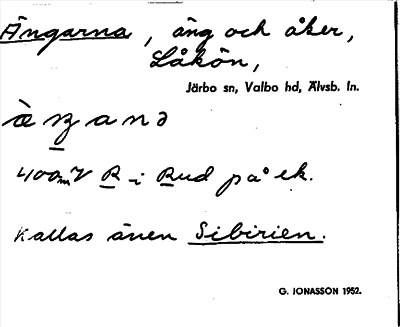 Ängarna, äng och åker,
Låkön,
Järbo sn, Valbo hd, Älvsb. ln.
400 m V R i Rud på ek.
Kallas även Sibirien.
G. JONASSON 1952.